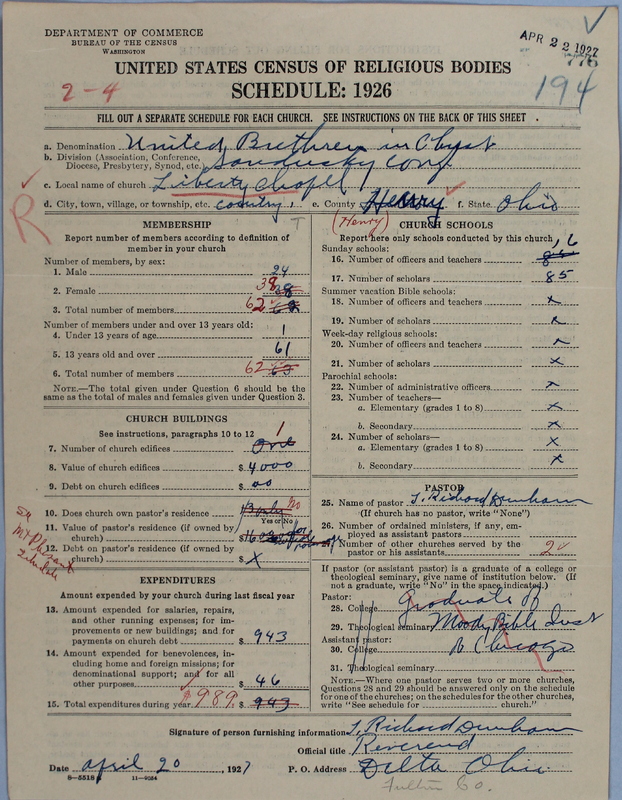 DEPARTMENT OF COMMERCE
BUREAU OF THE CENSUS
WASHINGTON
APR 22 1927
776
UNITED STATES CENSUS OF RELIGIOUS BODIES
2-4
SCHEDULE: 1926
194
FILL OUT A SEPARATE SCHEDULE FOR EACH CHURCH. SEE INSTRUCTIONS ON THE BACK OF THIS SHEET.
a. Denomination United Brethren in Christ
b. Division (Association, Conference, Diocese, Presbytery, Synod, etc.) Sandusky Conf
c. Local name of church Liberty Chapel
d. City, town, village, or township, etc. country, e. County Henry f. State Ohio
R
(Henry)
T
MEMBERSHIP
Report number of members according to definition of member in your church
Number of members, by sex:
1. Male 24
2. Female 38
3. Total number of members 62
Number of members under and over 13 years old:
4. Under 13 years of age 1
5. 13 years old and over 61
6. Total number of members 62 63
NOTE.—The total given under Question 6 should be the same as the total of males and females given under Question 3.
CHURCH BUILDINGS
See instructions, paragraphs 10 to 12
7. Number of church edifices One 1
8. Value of church edifices $ 4000
9. Debt on church edifices $ 00
10. Does church own pastor's residence? no
Yes or No
11. Value of pastor's residence (if owned by church) $
12. Debt on pastor's residence (if owned by church) $ X
EXPENDITURES
Amount expended by your church during last fiscal year
13. Amount expended for salaries, repairs, and other running expenses; for improvements or new buildings; and for payments on church debt $ 943
14. Amount expended for benevolences, including home and foreign missions; for denominational support; and for all other purposes $ 46
15. Total expenditures during year $989 $ 943
CHURCH SCHOOLS
Report here only schools conducted by this church
Sunday schools:
16. Number of officers and teachers 16
17. Number of scholars 85
Summer vacation Bible schools:
18. Number of officers and teachers x
19. Number of scholars x
Week-day religious schools:
20. Number of officers and teachers x
21. Number of scholars x
Parochial schools:
22. Number of administrative officers x
23. Number of teachers—
a. Elementary (grades 1 to 8) x
b. Secondary x
24. Number of scholars—
a. Elementary (grades 1 to 8) x
b. Secondary x
PASTOR
25. Name of pastor T. Richard Dunham
(If church has no pastor, write "None")
26. Number of ordained ministers, if any, employed as assistant pastors
27. Number of other churches served by the pastor or his assistants 2
If pastor (or assistant pastor) is a graduate of a college or theological seminary, give name of institution below. (If not a graduate, write "No" in the space indicated.)
Pastor:
28. College Graduate of
29. Theological seminary Moody Bible Inst
Assistant pastor:
30. College Chicago
31. Theological seminary
NOTE.—Where one pastor serves two or more churches, Questions 28 and 29 should be answered only on the schedule for one of the churches; on the schedules for the other churches, write "See schedule for church."
Signature of person furnishing information T. Richard Dunham
Official title Reverend
Date April 20, 1927 P. O. Address Delta Ohio
8-5518 11-9084
Fulton Co.